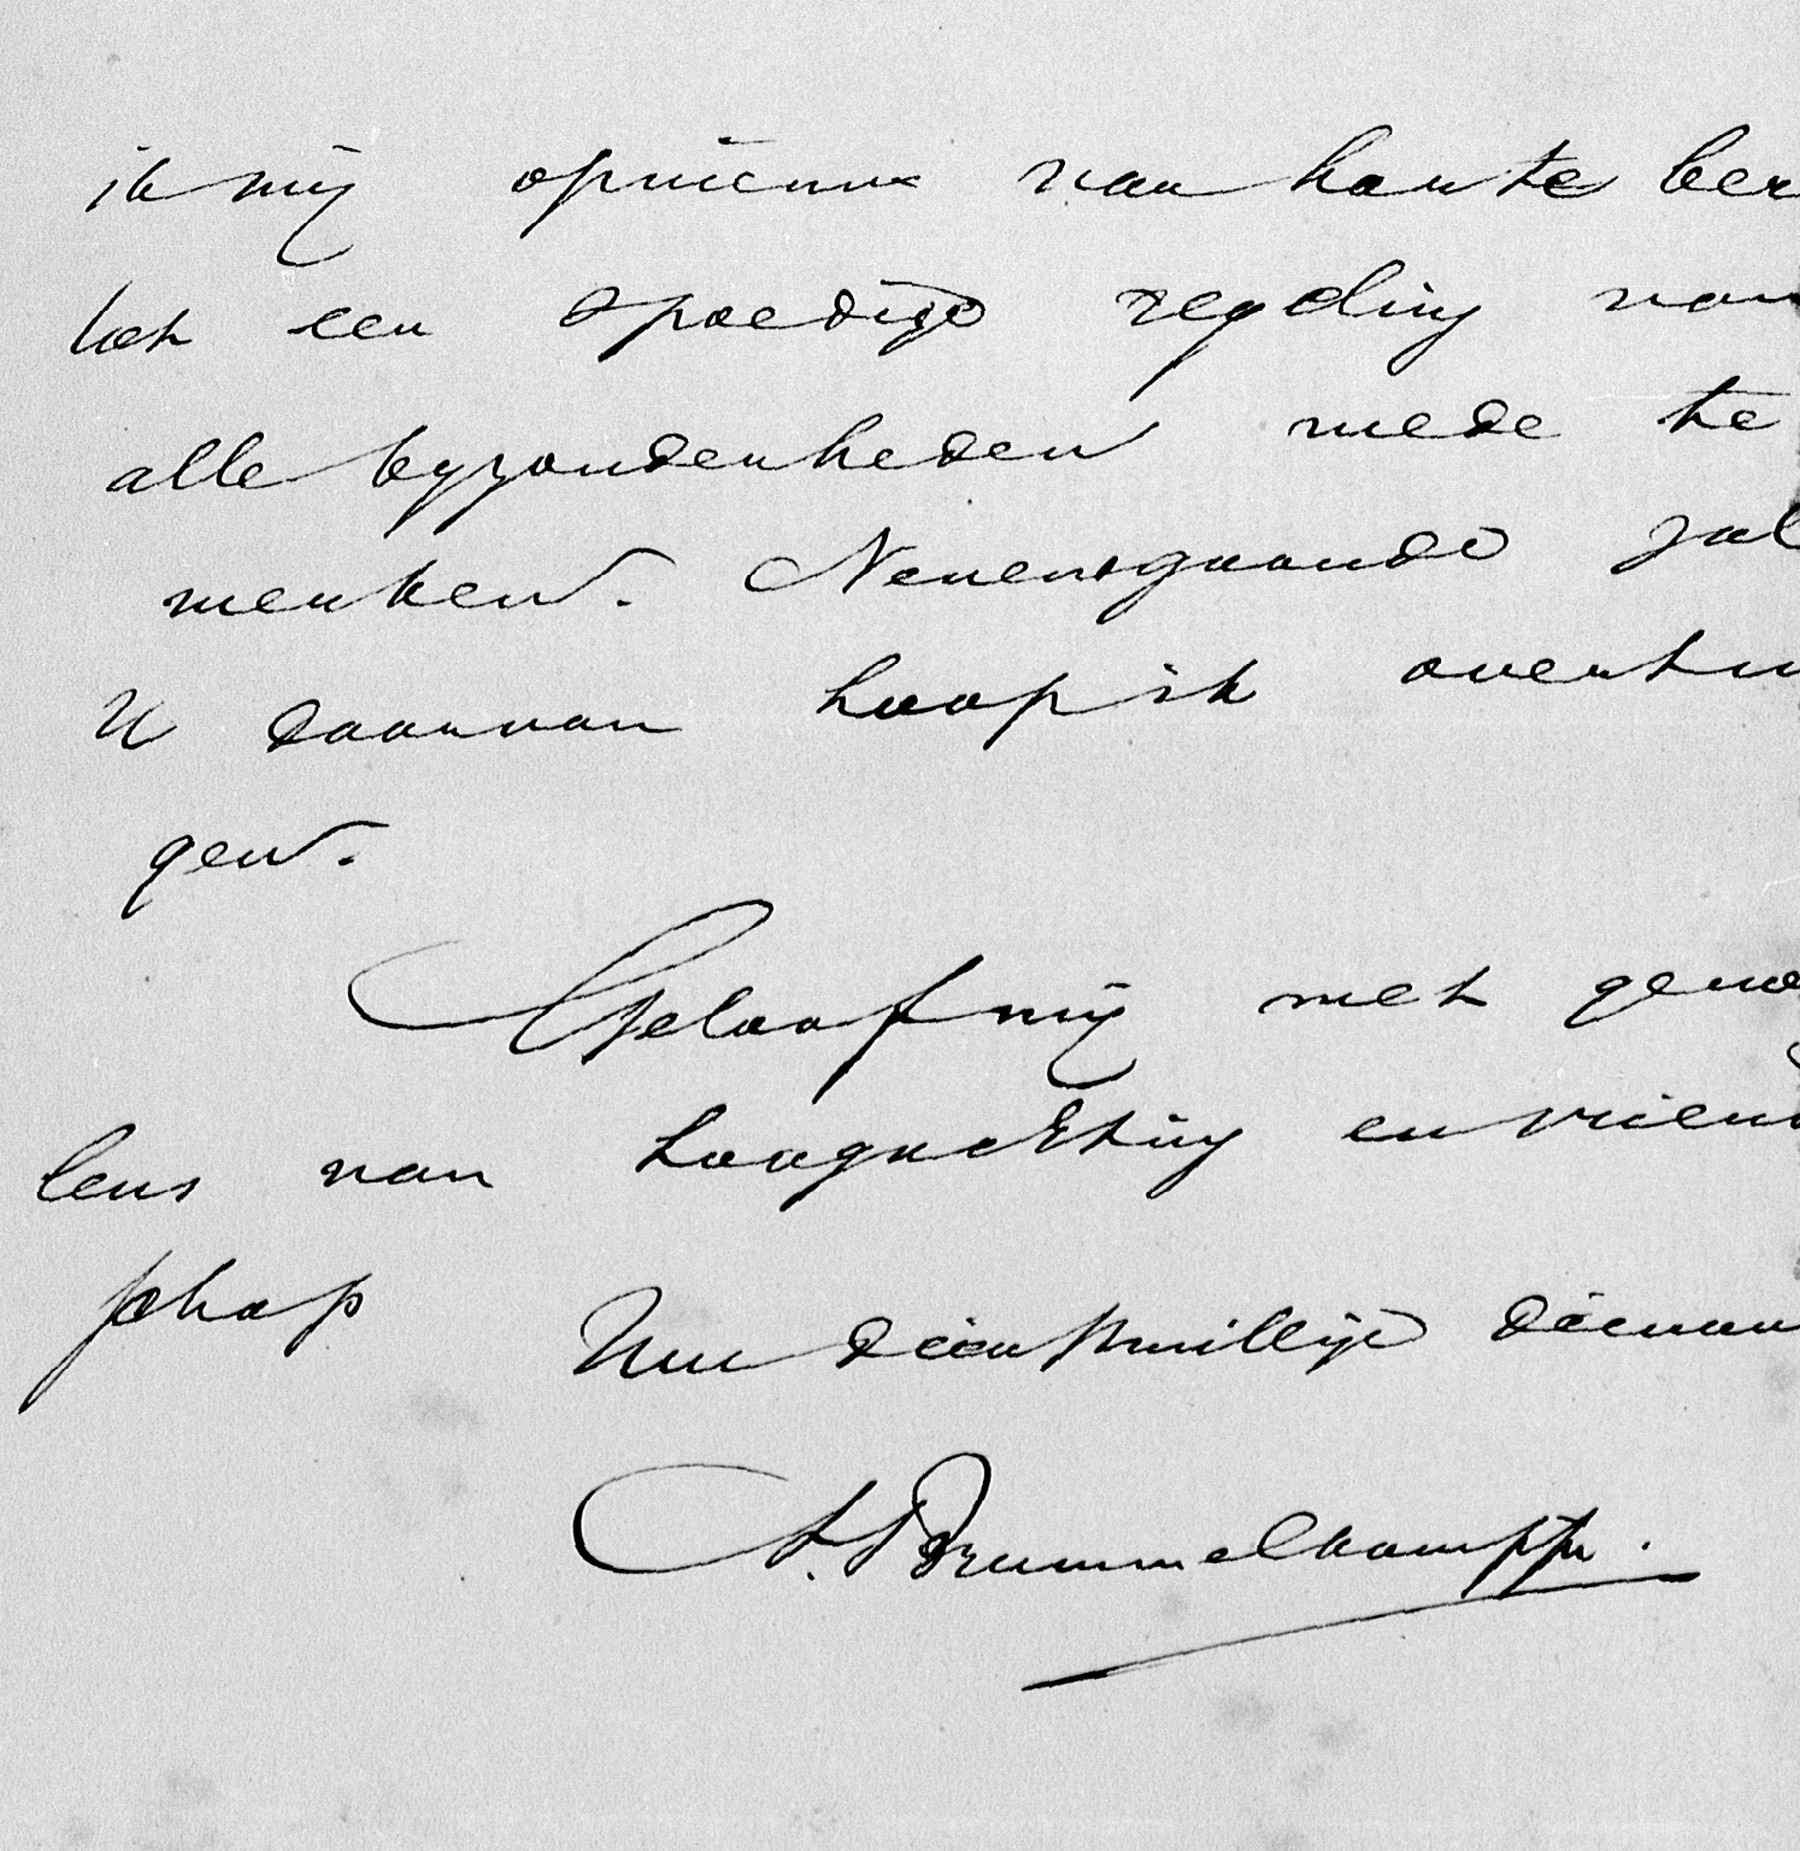 ik mij opnieuw van harte ber
tot een spoedige regeling van
alle byzonderheden mede te
werken. Nevensgaande zal
U daarvan hoop ik overtui
gen.
Geloof mij met gevoe
lens van hoogachting en vriend
schap
Uw dienstwillige dienaar
A. Brummelkamp Jr.